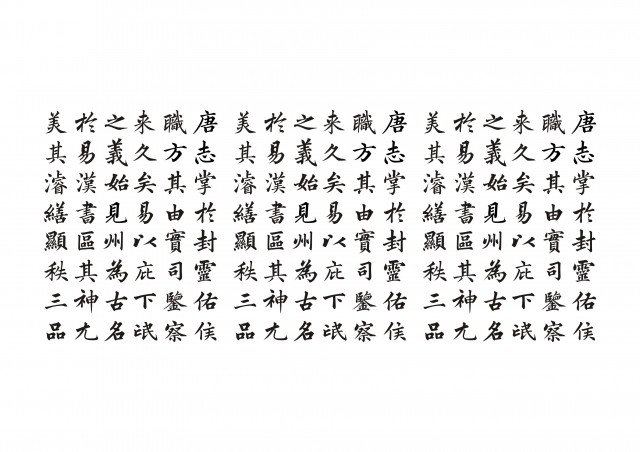 唐志掌於封靈佑侯
職方其由實司鑒察
來久矣易以庇下氓
之義始見州為古名
於易漢書區其神尤
美其濬繕顯秩三品
唐志掌於封靈佑侯
職方其由實司鑒察
來久矣易以庇下氓
之義始見州為古名
於易漢書區其神尤
美其濬繕顯秩三品
唐志掌於封靈佑侯
職方其由實司鑒察
來久矣易以庇下氓
之義始見州為古名
於易漢書區其神尤
美其濬繕顯秩三品